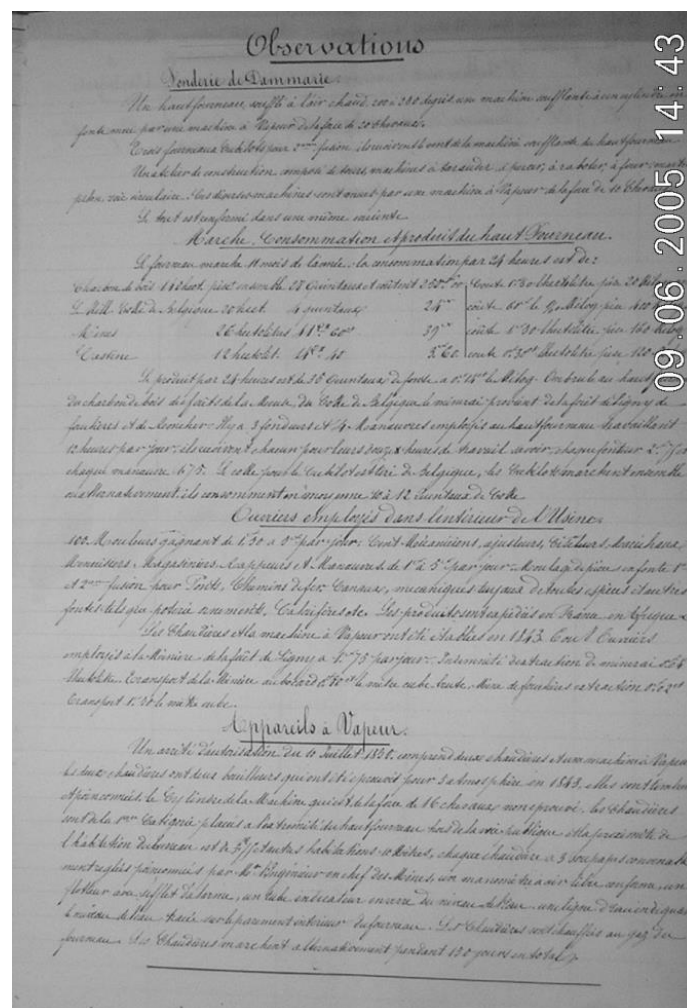 Observations
Fonderie de Dammarie.
Un haut fourneau, soufflé à l'air chaud, 200 à 280 degrés une machine soufflante à un cylindre en
fonte mue par une machine à Vapeur de la force de 20 Chevaux.
Trois fourneaux Cubilots pour 2me fusion, ils reçoivent le vent de la machine soufflante du haut fourneau
Un atelier de construction composé de tours, machines à tarauder, à percer, à raboter, à four,
scie circulaire. Ces diverses machines sont mues par une machine à Vapeur de la force de 10 Chevaux
Le tout est renfermé dans une même enceinte.
Marche, Consommation et produit du haut Fourneau.
Le fourneau marche 11 mois de l'année, la consommation par 24 heures est de:
Charbon de bois 142 hect. ensemble 27 Quintaux et coûtent coûte 1f 80 l'hectolitre pèse 20 Kilog
Coke de Belgique 20 hect. 4 quintaux 24 coûte le Kilog pèse
Mines 26 hectolitres 39 coûte 1f 30 l'hectolitre pèse 160 Kilog
Castine 12 hectolit. 3,60 coûte 0f 30 l'hectolitre pèse 120
Le produit par 24 heures est de 35 Quintaux de fonte à le Kilog. On brule au haut
du charbon de bois des forêts de la Meuse, du Coke de Belgique le minerai provient de la forêt de Ligny de
et de Il y a 3 fondeurs et 4 Manœuvres employés au haut fourneau travaillant
12 heures par jour; ils reçoivent chacun pour leurs douze heures de travail savoir, chaque fondeur
chaque manœuvre Le coke pour le Cubilot est tiré de Belgique, les Cubilots marchent ensemble
ou alternativement; ils consomment en moyenne 10 à 12 Quintaux de Coke
Ouvriers employés dans l'intérieur de l'Usine
100 Mouleurs gagnant de 1,50 à 5f par jour: Cent Mécaniciens, ajusteurs, Ciseleurs, Maréchaux,
Menuisiers, Magasiniers, Rappeurs et Manœuvres de 1f à 5f par jour. Moulage de pièces en fonte 1re
et 2me fusion pour Ponts, Chemins de fer, Canaux, mécaniques, tuyaux de toutes espèces et autres
fontes telles que poterie ornements, Calorifères etc. Les produits sont expédiés en France, en Afrique
Les Chaudières et la machine à Vapeur ont été établies en 1843. Cent Ouvriers
employés à la Minière de la forêt de Ligny à 1f 75 par jour. Indemnité d'extraction de minerai
l'hectolitre. Transport de la Minière au bocard le mètre cube brute. Mine de extraction
Transport 1f 30 le mètre cube.
Appareils à Vapeur.
Un arrêté d'autorisation du 10 Juillet 1850, comprend deux chaudières et une machine à Vapeur
Les deux chaudières ont deux bouilleurs qui ont été éprouvés pour 3 atmosphère en 1843, elles sont timbrées
et poinconnées. Le Cylindre de la Machine qui est de la force de 16 chevaux non éprouvé. Les Chaudières
sont de la 1re Catégorie placées à l'extrémité du haut fourneau hors de la voie publique et la proximité de
l'habitation du bureau est de d'autres habitations 10 Mètres, chaque chaudière a 3 soupapes
montres réglés poinconnées par Mr l'Ingénieur en chef des Mines, un manomètre à air libre conforme, un
flotteur avec sifflet d'alarme, un tube indicateur en verre du niveau de l'eau, une ligne d'eau indiquant
le niveau de l'eau tracée sur le parement intérieur du fourneau. Les Chaudières sont chauffées au gaz du
fourneau. Les Chaudières marchent alternativement pendant 180 jours en total.
09.06.2005 14:43